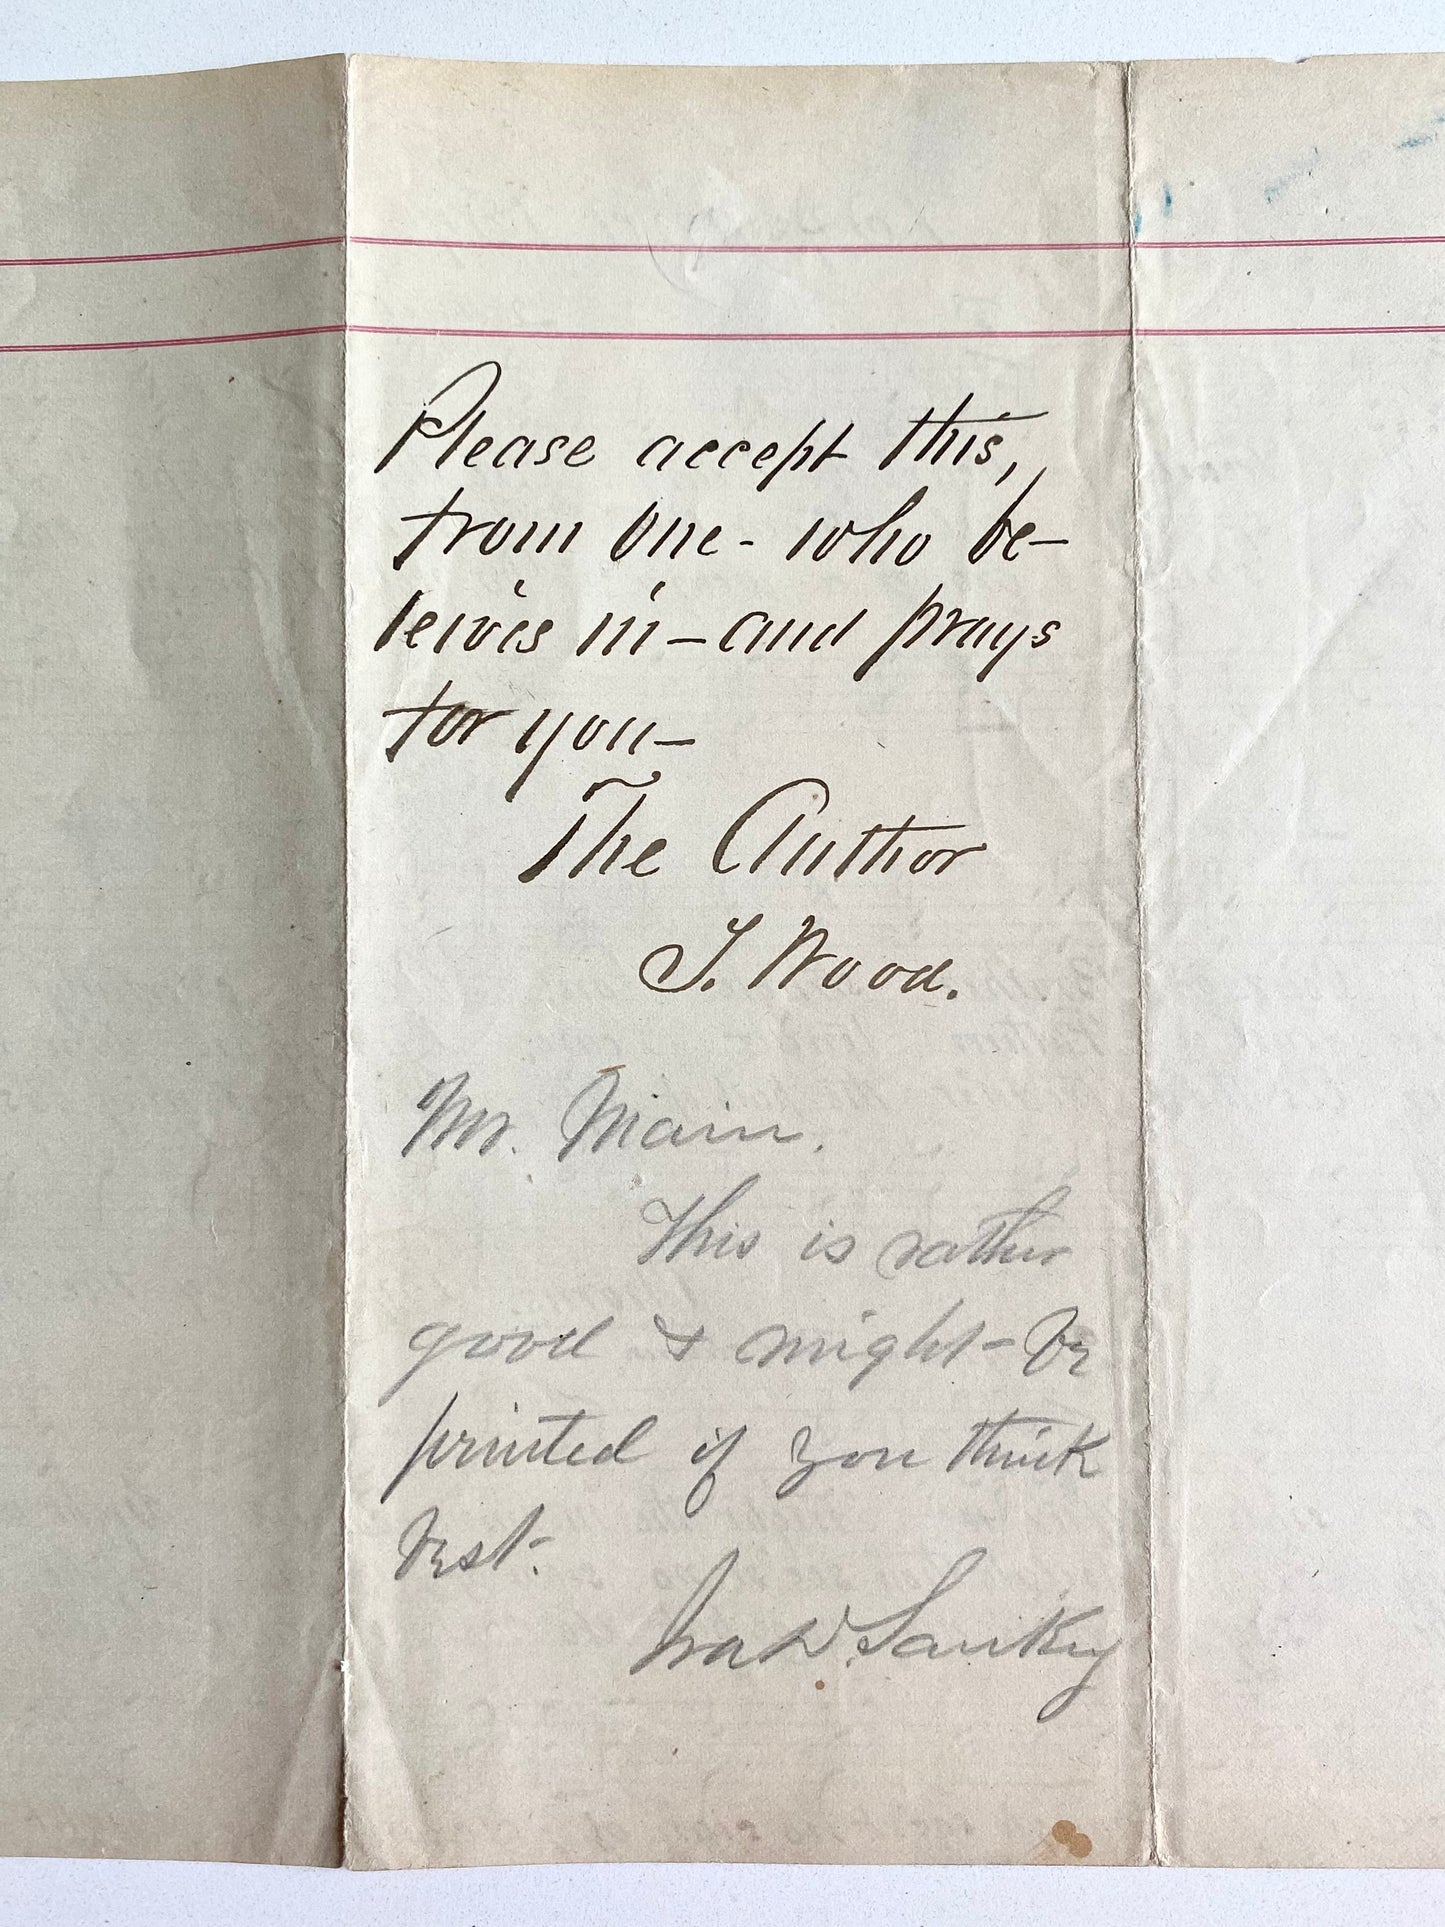 Please accept this,
from one - who be-
leives in - and prays
for you -
The Author
T. Wood.
Mr. Main.
This is rather
good & might - be
printed if you think
best.
Ira D. Sankey